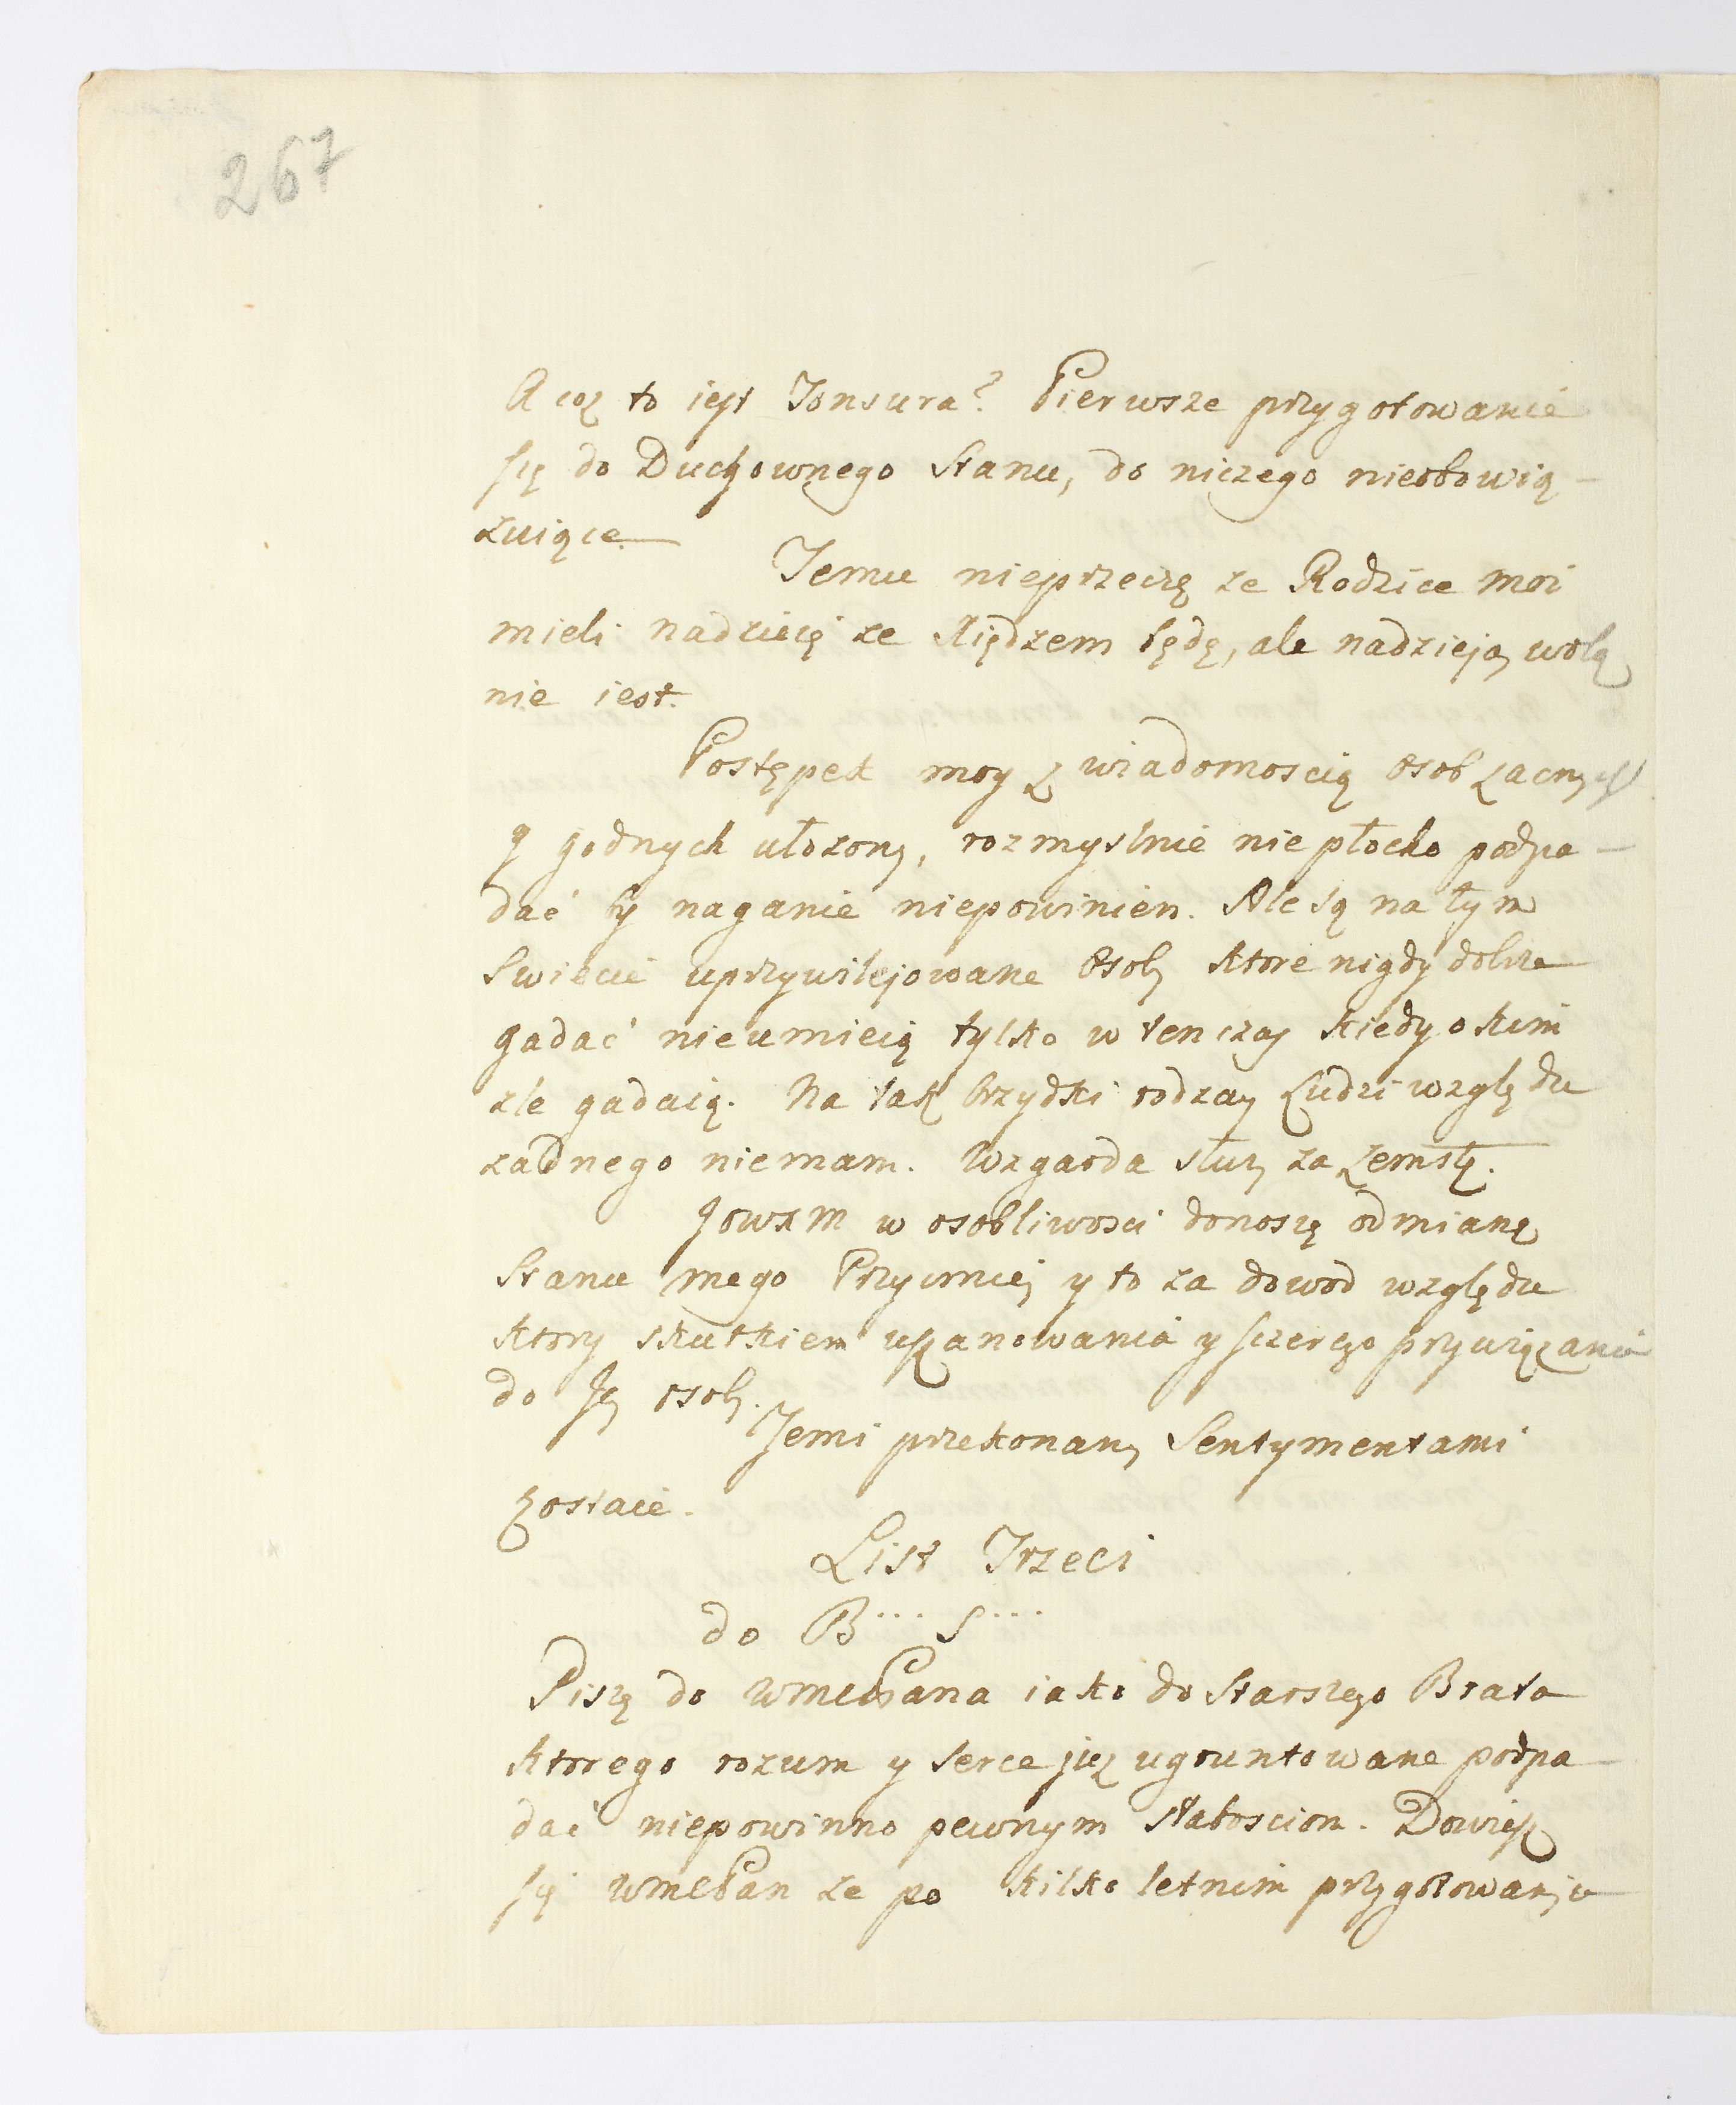 267
A coz to iest Tonsura? Pierwsze przygotowanie
się do Duchownego Stanu, do niczego nieobowią-
zuiące.
Temu nieprzeczę ze Rodzice moi
mieli nadzieię ze Xiędzem będę, ale nadzieja wolą
nie iest.
Postępek moy z wiadomoscią Osob zacnych
y godnych ułozony, rozmyslnie nie płocho podpa-
dać by naganie niepowinien. Ale są na tym
Swiecie uprzywilejowane Osoby ktore nigdy dobrze
gadać nieumieią tylko w tenczas kiedy o kim
zle gadaią. Na tak brzydki rodzay Ludzi względu
zadnego niemam. Wzgarda słuzy za zemstę.
w osobliwosci donoszę odmianę
Stanu mego Przyimiey y to za dowod względu
ktory skutkiem uszanowania y szczerego przywiązania
do Jey osoby.
Temi przekonany Sentymentami
zostaie.
List Trzeci
do B... S...
Piszę do WmcPana iako do Starszego Brata
ktorego rozum y Serce juz ugruntowane podpa-
dać niepowinno pewnym słabosciom. Dowiesz
się WmcPan ze po kilko letnim przygotowaniu